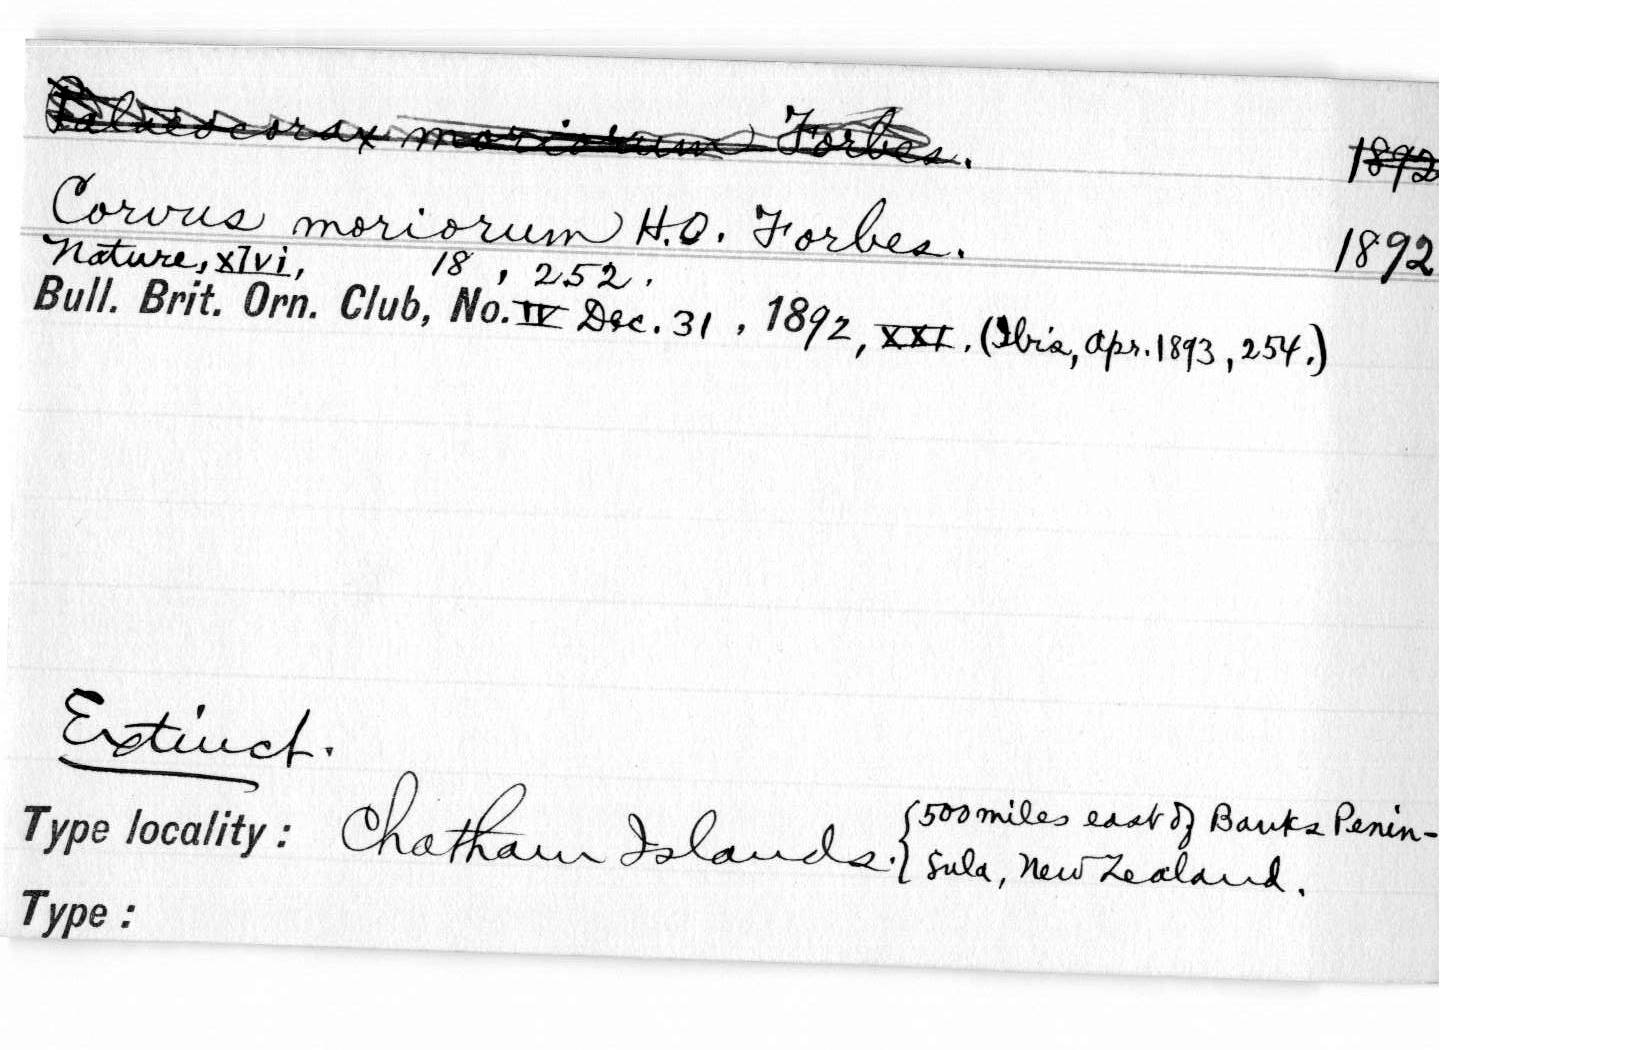 Palaeocorax moriorum Forbes. 1892
Corvus moriorum H.O. Forbes. 1892
Nature, xlvi, 18, 252.
Bull. Brit. Orn. Club, No. IV Dec. 31, 1892, XXI. (Ibis, Apr. 1893, 254.)
Extinct.
Type locality: Chatham Islands. {500 miles east of Banks Penin-
sula, New Zealand.
Type: